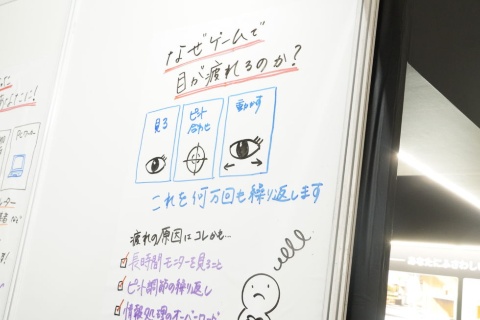 なぜゲームで
目が疲れるのか?
見る
ピント
合わせ
動かす
これを何万回も繰り返します
疲れの原因はコレかも…
長時間モニターを見ること
ピント調節の繰り返し
情報処理のオーバーロード